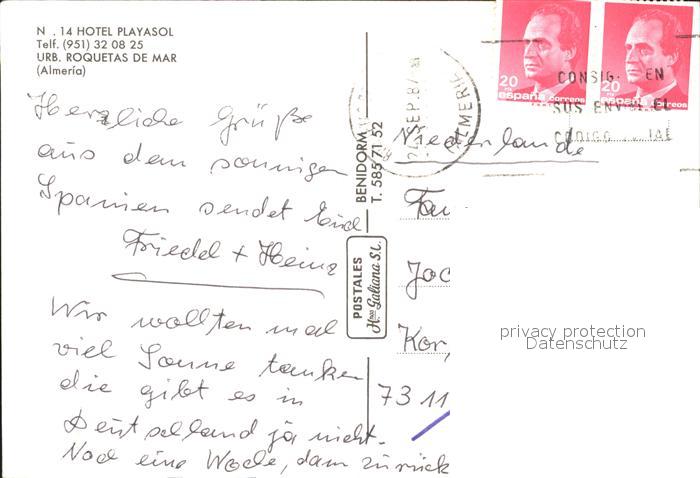 N . 14 HOTEL PLAYASOL
Telf. (951) 32 08 25
URB. ROQUETAS DE MAR
(Almería)
Herzliche Grüße
aus dem sonnigen
Spanien sendet Euch
Friedel + Heinz
Wir wollten mal
viel Sonne tanken
die gibt es in
Deutschland ja nicht.
Noch eine Woche, dann zurück
BENIDORM
T. 585 71 52
POSTALES
Hnos Galiana S.L.
20
españa correos
20
españa correos
SEP. 87
ALMERIA
CONSIG. EN
SUS ENV
CODIGO
Niederlande
Fam
Joc
Kor,
73 11
privacy protection
Datenschutz